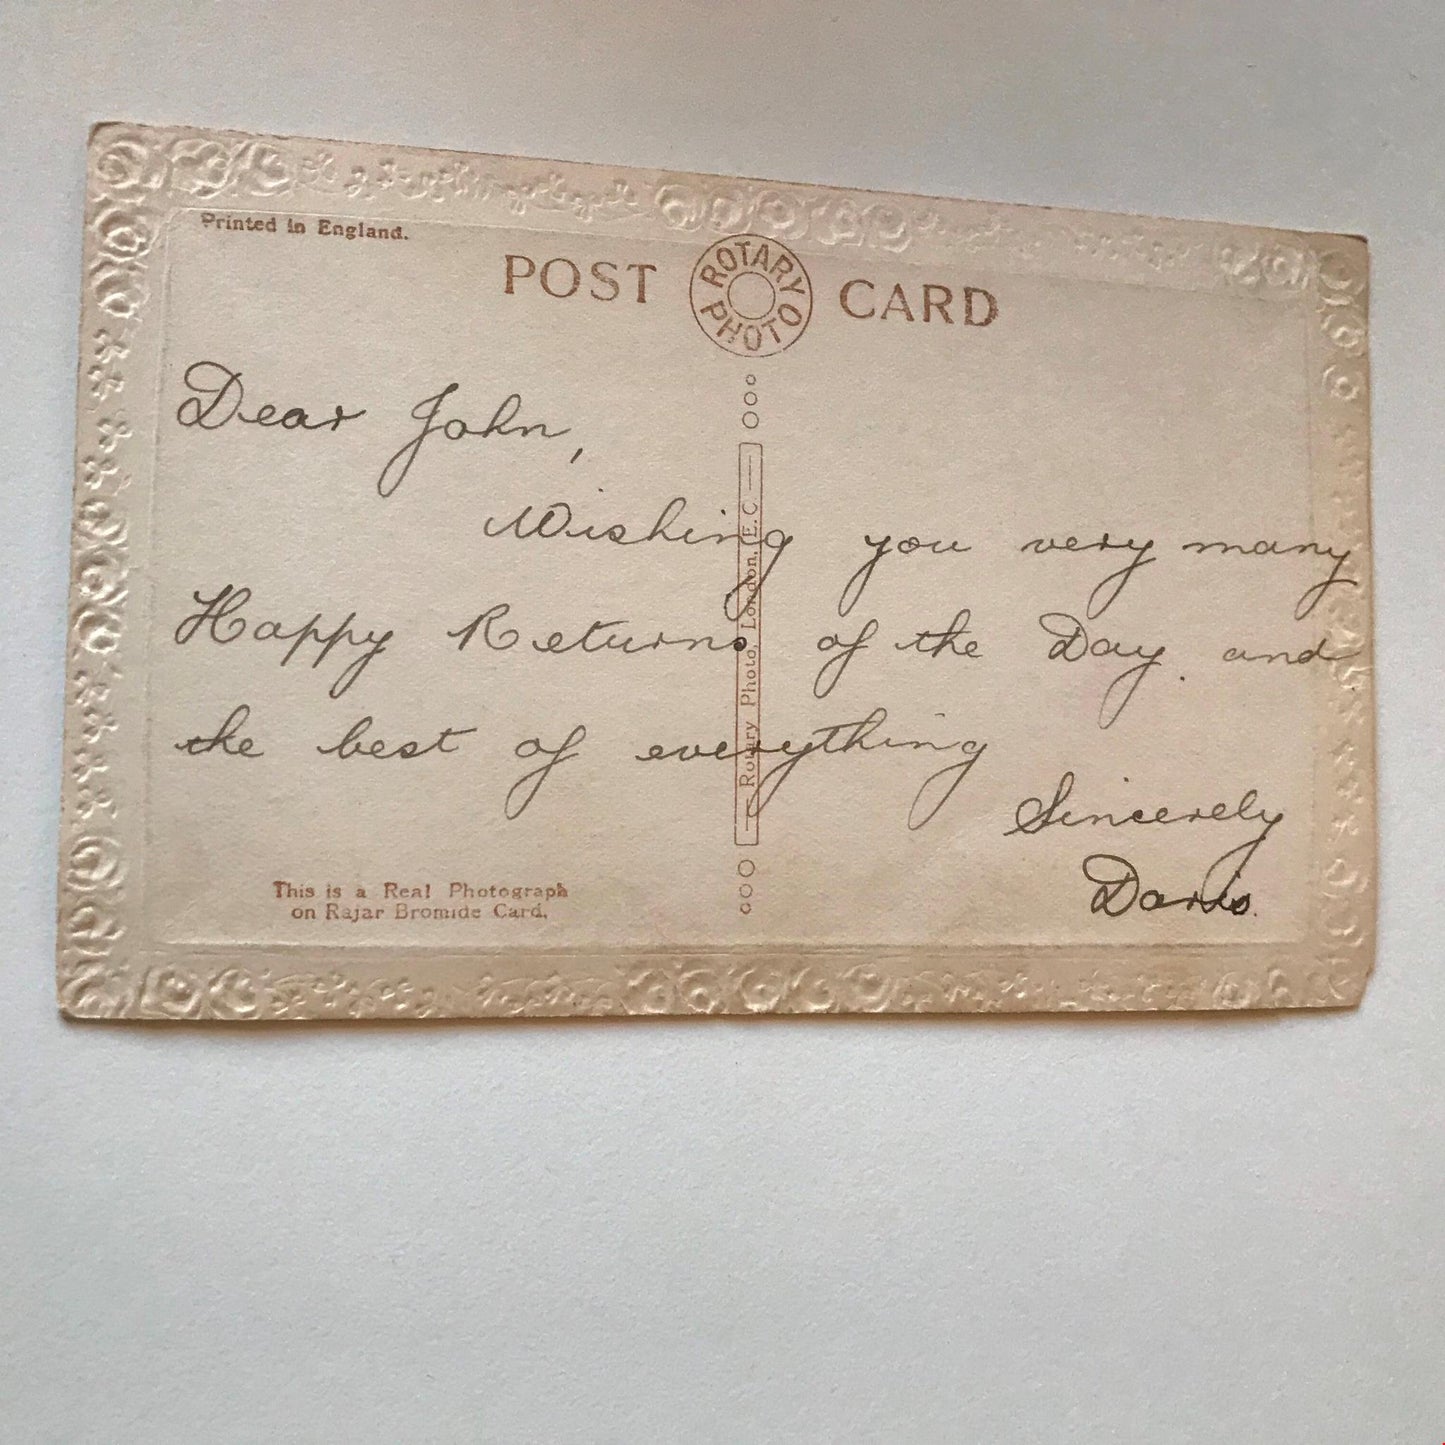 Printed in England.
POST ROTARY PHOTO CARD
Dear John,
Wishing you very many
Happy Returns of the Day. and
the best of everything
Sincerely
Doris.
Rotary Photo, London, E.C.
This is a Real Photograph
on Rajar Bromide Card.